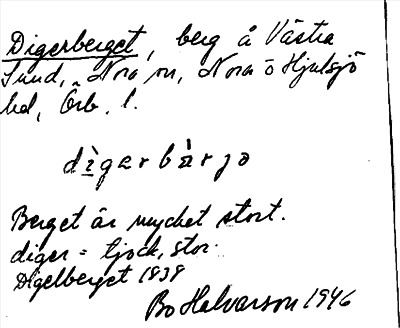 Digerberget, berg å Västra
Sund, Nora sn, Nora o Hjulsjö
hd, Örb. l.
dìgarbä̀rjə
Berget är mycket stort.
diger = tjock, stor.
Digelberget 1838
Bo Halvarson 1946